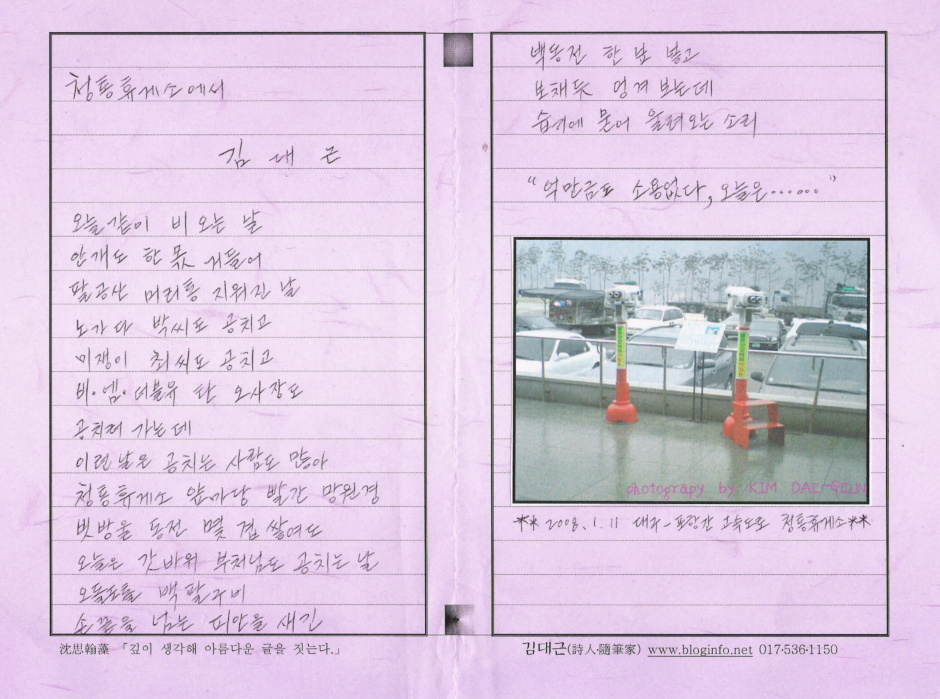 청통휴게소에서
김 대 근
오늘같이 비 오는 날
안개도 한 몫 거들어
팔공산 머리통 지워진 날
노가다 박씨도 공치고
미쟁이 최씨도 공치고
비·엠·더블유 탄 오사장도
공치러 가는데
이런날은 공치는 사람도 많아
청통휴게소 앞마당 빨간 망원경
빗방울 동전 몇 겹 쌓여도
오늘은 갓바위 부처님도 공치는 날
오돌도돌 백팔구비
손끝을 넘는 피안을 새긴
백동전 한 보 넣고
보채듯 엉겨 보는데
습기에 묻어 울려오는 소리
“억만금도 소용없다, 오늘은……”
photograpy by KIM DAE-GEUN
** 2008. 1. 11 대구-포항간 고속도로 청통휴게소**
沈思翰藻 「깊이 생각해 아름다운 글을 짓는다.」
김대근(詩人·隨筆家) www.bloginfo.net 017-536-1150